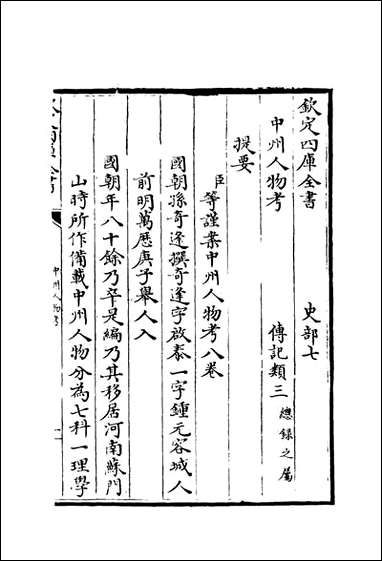 欽定四庫全書　史部七
中州人物考　傳記類三總録之屬
提要
臣等謹案中州人物考八卷
國朝孫奇逢撰奇逢字啟泰一字鍾元容城人
前明萬厯庚子舉人入
國朝年八十餘乃卒是編乃其移居河南蘇門
山時所作備載中州人物分為七科一理學
中州人物考